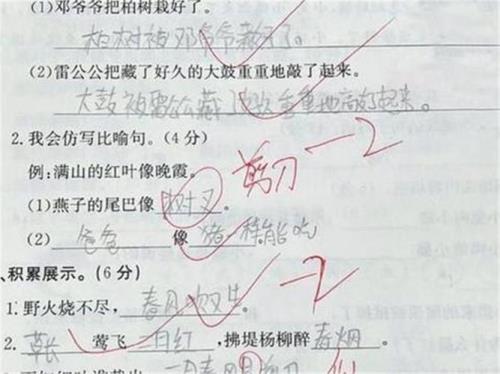 (1)邓爷爷把柏树栽好了。
柏树被邓爷爷栽好了。
(2)雷公公把藏了好久的大鼓重重地敲了起来。
大鼓被雷公公藏 重重地敲了起来。
2.我会仿写比喻句。(4分)
-2
例:满山的红叶像晚霞。
剪刀
(1)燕子的尾巴像 树叉 。
(2) 爸爸 像 猪一样能吃
、积累展示。(6分)
-2
1.野火烧不尽, 春风吹又生
2. 草长 莺飞 二月 ,拂堤杨柳醉 春烟 。
二月春风 剪刀